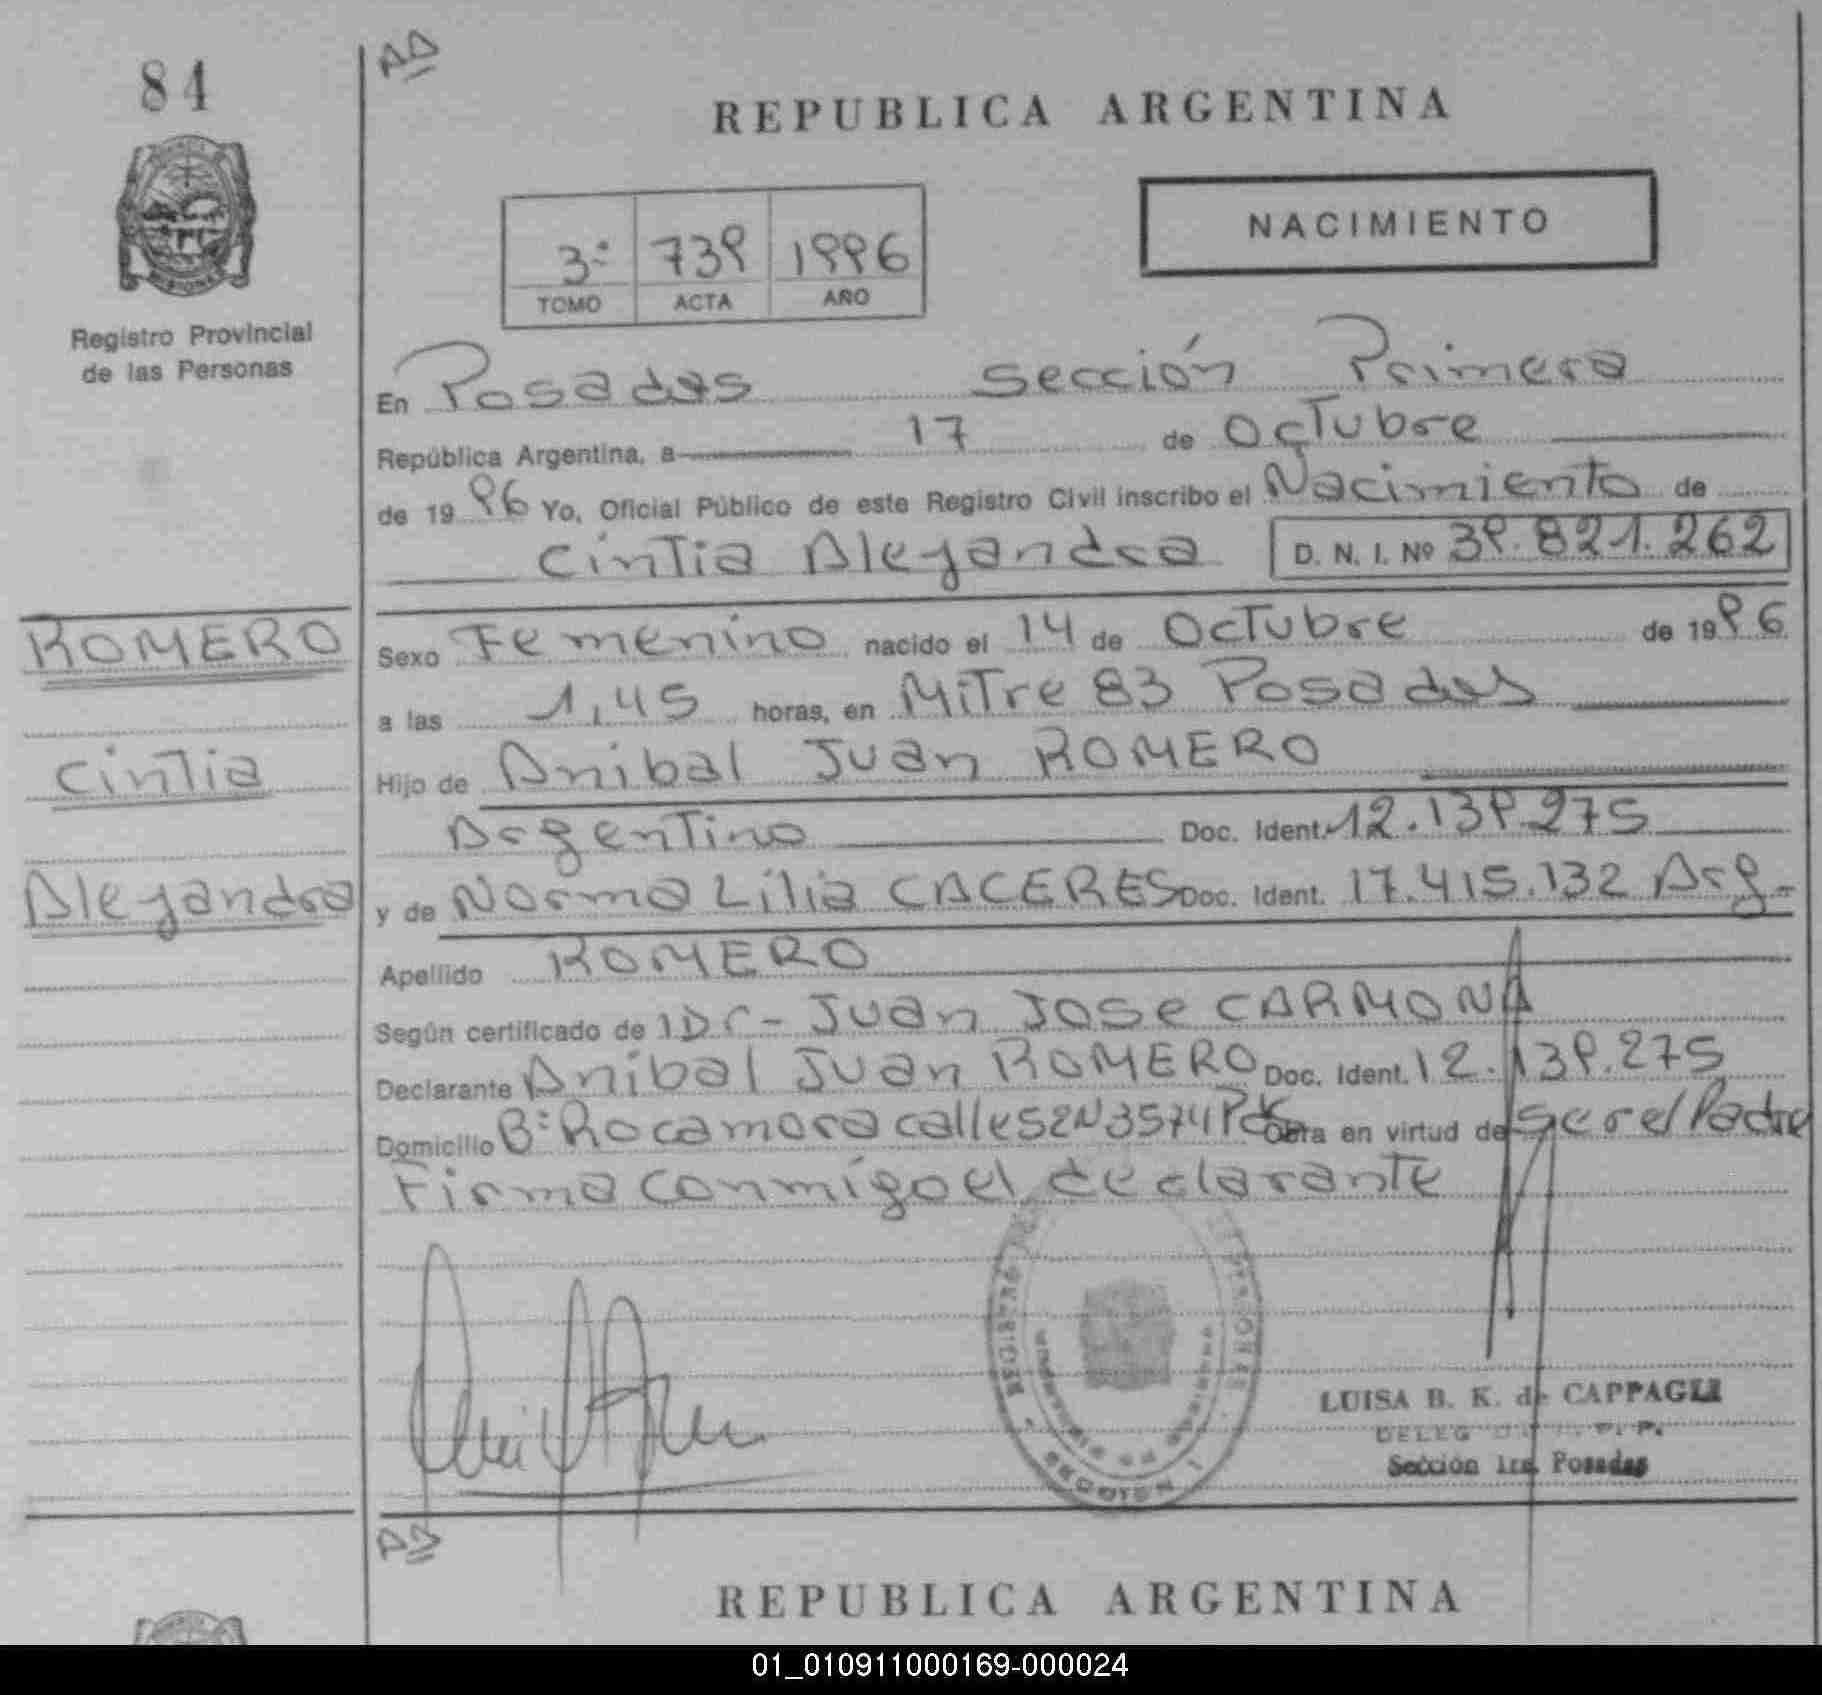 84
AD
REPUBLICA ARGENTINA
NACIMIENTO
3º 739 1996
TOMO ACTA AÑO
Registro Provincial
de las Personas
En Posadas sección Primera
República Argentina, a 17 de Octubre
de 1996 Yo, Oficial Público de este Registro Civil inscribo el Nacimiento de
Cintia Alejandra D. N. I. Nº 39.821.262
ROMERO
Sexo Femenino nacido el 14 de Octubre de 1996
a las 1,45 horas, en Mitre 83 Posadas
Cintia
Hijo de Anibal Juan ROMERO
Argentino Doc. Ident. 12.139.275
Alejandra
y de Norma Lilia CACERES Doc. Ident. 17.415.132 Arg.
Apellido ROMERO
Según certificado de Dr- Juan Jose CARMONA
Declarante Anibal Juan ROMERO Doc. Ident. 12.139.275
Domicilio Bº Rocamora calle 52 N 3574 Pdas Obra en virtud de ser el Padre
Firma conmigo el declarante
LUISA B. K. de CAPPAGLI
DELEG R. P. P.
Sección 1ra. Posadas
SECCION 1
REPUBLICA ARGENTINA
01_010911000169-000024